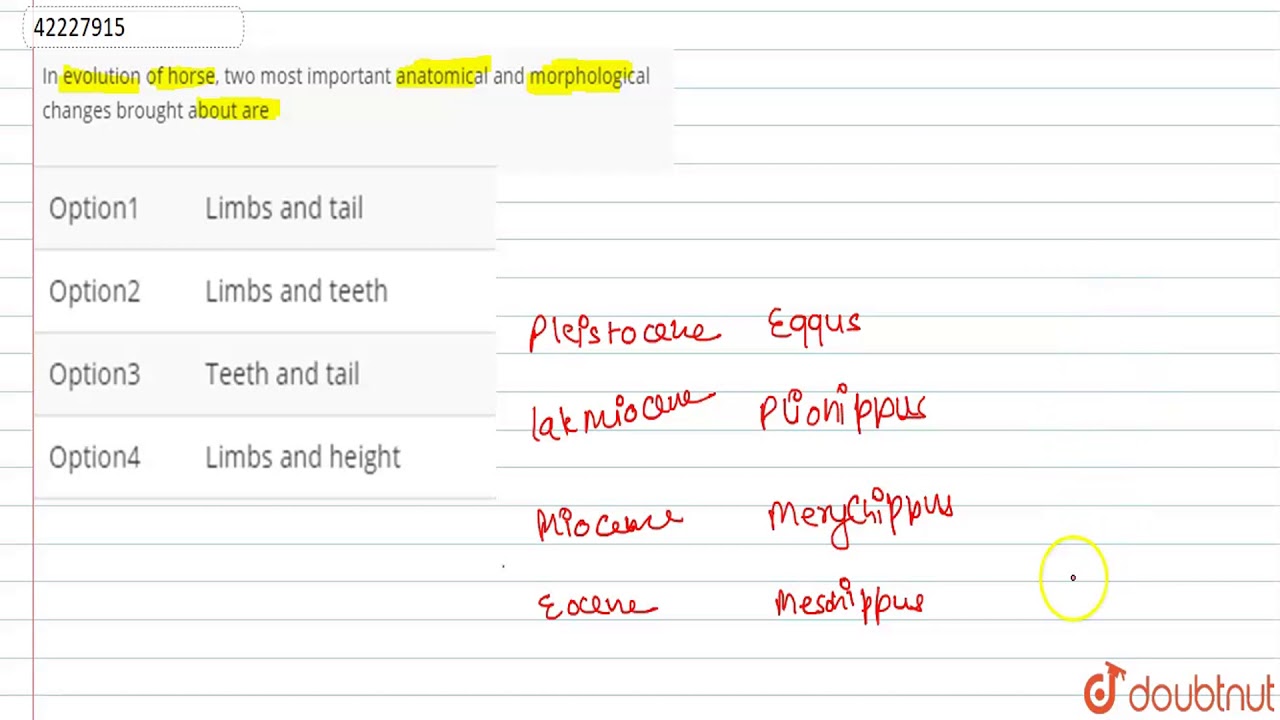 42227915
In evolution of horse, two most important anatomical and morphological
changes brought about are
Option1 Limbs and tail
Option2 Limbs and teeth
Option3 Teeth and tail
Option4 Limbs and height
Pleistocene Eqqus
late Miocene Pliohippus
Miocene Merychippus
Eocene Mesohippus
doubtnut